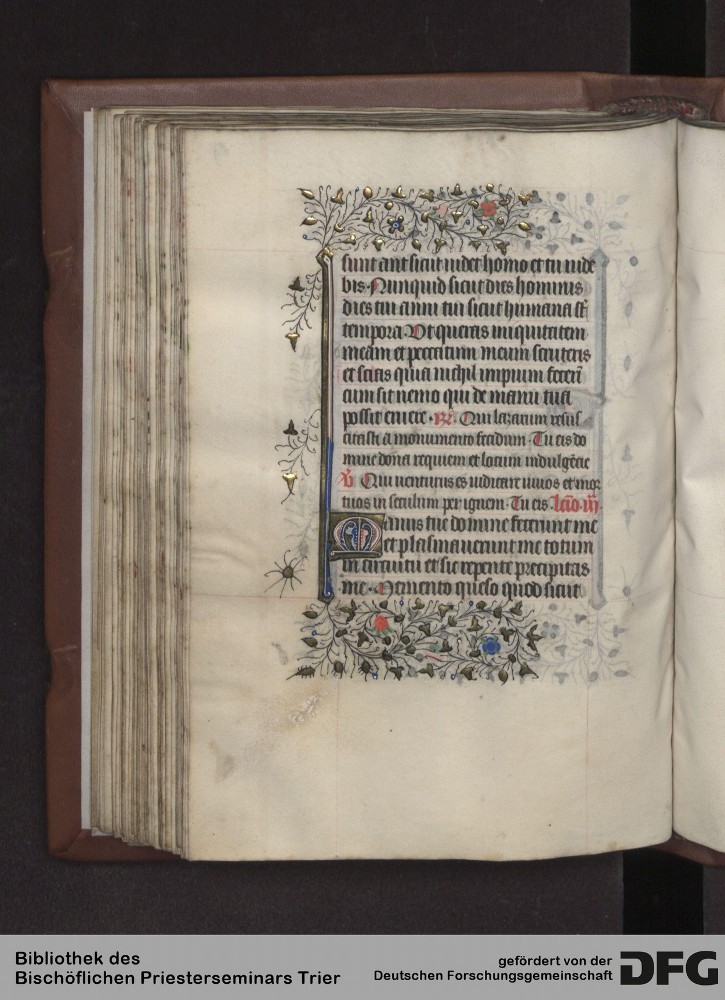 sunt aut sicut uidet homo et tu uide
bis. Nunquid sicut dies hominis
dies tui anni tui sicut humana st̄
tempora Vt queras iniquitatem
meam et peccatum meum scruteris
et scias quia nichil impium fecerī
cum sit nemo qui de manu tua
possit eruere. R̄. Qui lazarum resus
citasti a monumento fetidum. Tu eis do
mine dona requiem et locum indulgētie
V̄ Qui uenturus es iudicare uiuos et mor
tuos in seculum per ignem. Tu eis. lc̄io. iiī
Manus tue domine fecerunt me
et plasmauerunt me totum
in circuitu et sic repente precipitas
me. Memento queso quod sicut
Bibliothek des
Bischöflichen Priesterseminars Trier
gefördert von der
Deutschen Forschungsgemeinschaft
DFG